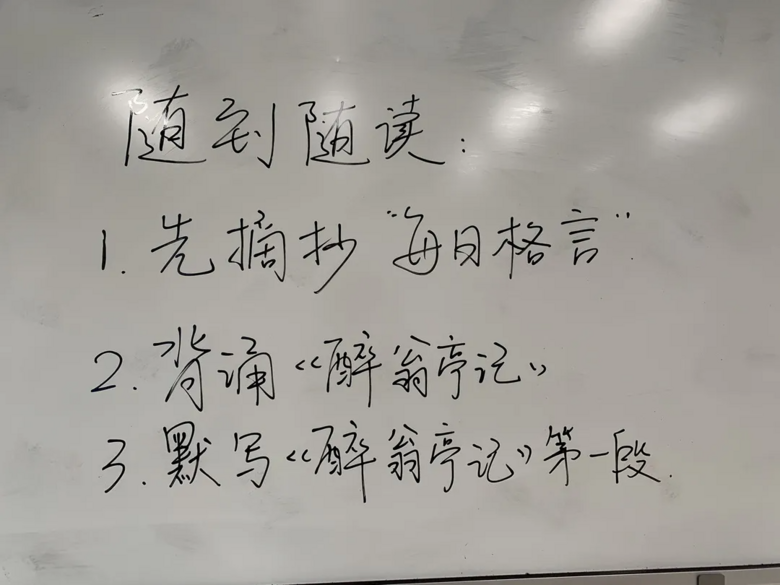 随到随读：
1. 先摘抄“每日格言”.
2. 背诵《醉翁亭记》
3. 默写《醉翁亭记》第一段.